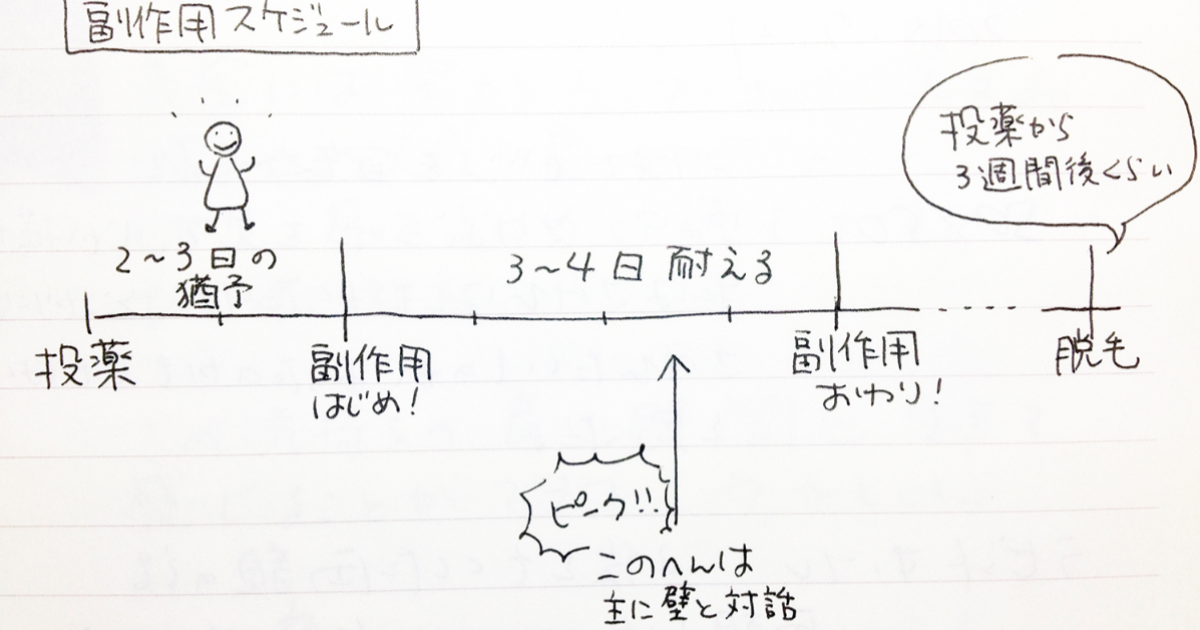 副作用スケジュール
投薬から
3週間後くらい
2～3日の
猶予
3～4日 耐える
投薬
副作用
はじめ!
副作用
おわり!
脱毛
ピーク!!
このへんは
主に壁と対話